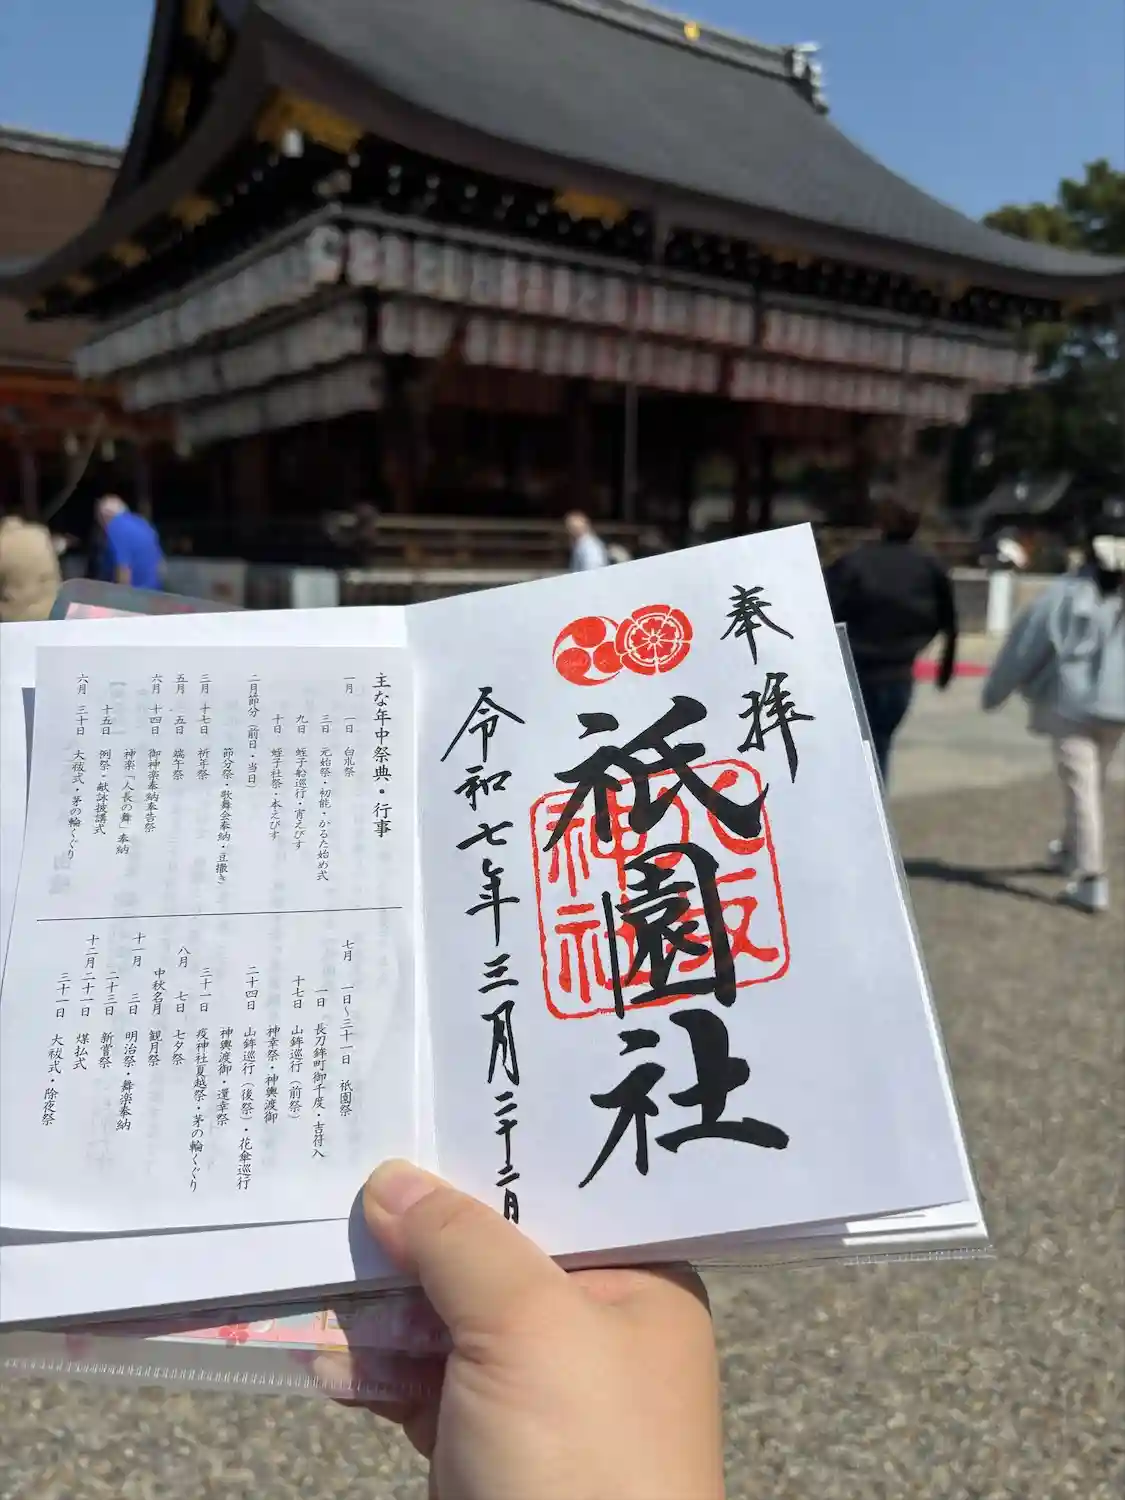 奉拝
祇園社
八坂神社
令和七年三月二十二日
主な年中祭典・行事
一月 一日 白朮祭
三日 元始祭・初能・かるた始め式
九日 蛭子船巡行・宵えびす
十日 蛭子社祭・本えびす
二月節分（前日・当日）
節分祭・歌舞会奉納・豆撒き
三月 十七日 祈年祭
五月 五日 端午祭
六月 十四日 御神楽奉納奉告祭
神楽「人長の舞」奉納
十五日 例祭・献詠披講式
六月 三十日 大祓式・茅の輪くぐり
七月 一日～三十一日 祇園祭
一日 長刀鉾町御千度・吉符入
十七日 山鉾巡行（前祭）
神幸祭・神輿渡御
二十四日 山鉾巡行（後祭）・花傘巡行
神輿渡御・還幸祭
三十一日 疫神社夏越祭・茅の輪くぐり
八月 七日 七夕祭
中秋名月 観月祭
十一月 三日 明治祭・舞楽奉納
二十三日 新嘗祭
十二月二十一日 煤払式
三十一日 大祓式・除夜祭